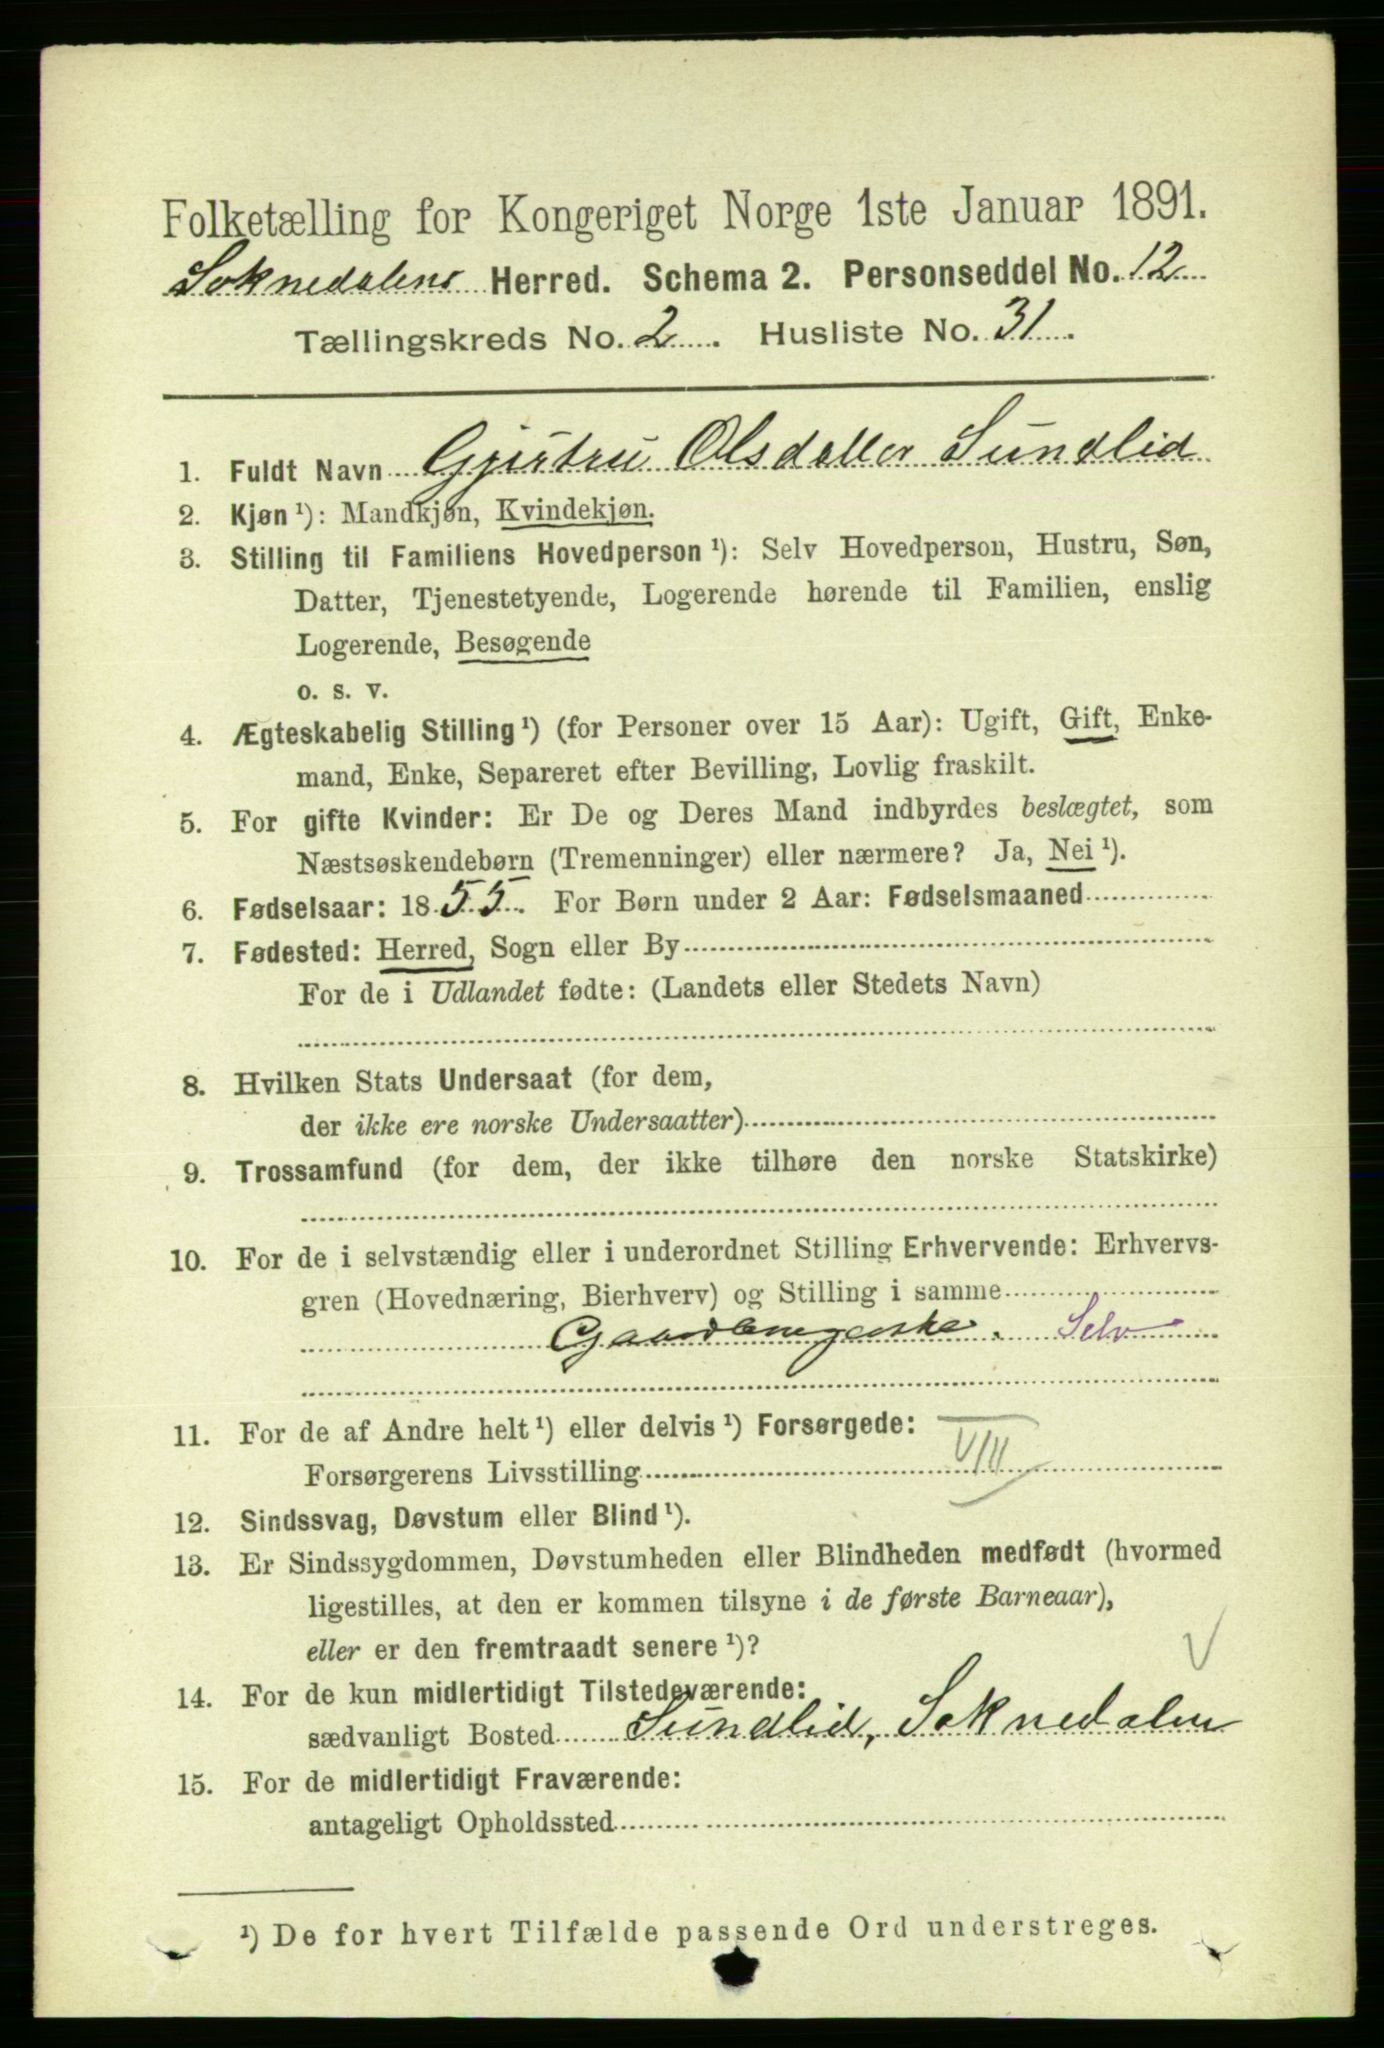 Folketælling for Kongeriget Norge 1ste Januar 1891.
Soknedalens Herred. Schema 2. Personseddel No. 12
Tællingskreds No. 2. Husliste No. 31.
1. Fuldt Navn Gjertru Olsdatter Sundlid
2. Kjøn ¹): Mandkjøn, Kvindekjøn.
3. Stilling til Familiens Hovedperson ¹): Selv Hovedperson, Hustru, Søn,
Datter, Tjenestetyende, Logerende hørende til Familien, enslig
Logerende, Besøgende
o. s. v.
4. Ægteskabelig Stilling ¹) (for Personer over 15 Aar): Ugift, Gift, Enke-
mand, Enke, Separeret efter Bevilling, Lovlig fraskilt.
5. For gifte Kvinder: Er De og Deres Mand indbyrdes beslægtet, som
Næstsøskendebørn (Tremenninger) eller nærmere? Ja, Nei ¹).
6. Fødselsaar: 1855. For Børn under 2 Aar: Fødselsmaaned
7. Fødested: Herred, Sogn eller By
For de i Udlandet fødte: (Landets eller Stedets Navn)
8. Hvilken Stats Undersaat (for dem,
der ikke ere norske Undersaatter)
9. Trossamfund (for dem, der ikke tilhøre den norske Statskirke)
10. For de i selvstændig eller i underordnet Stilling Erhvervende: Erhvervs-
gren (Hovednæring, Bierhverv) og Stilling i samme
Gaardbrugerske. Selv
11. For de af Andre helt ¹) eller delvis ¹) Forsørgede:
Forsørgerens Livsstilling VIII
12. Sindssvag, Døvstum eller Blind ¹).
13. Er Sindssygdommen, Døvstumheden eller Blindheden medfødt (hvormed
ligestilles, at den er kommen tilsyne i de første Barneaar),
eller er den fremtraadt senere ¹)? V
14. For de kun midlertidigt Tilstedeværende:
sædvanligt Bosted Sundlid, Soknedalen
15. For de midlertidigt Fraværende:
antageligt Opholdssted
¹) De for hvert Tilfælde passende Ord understreges.